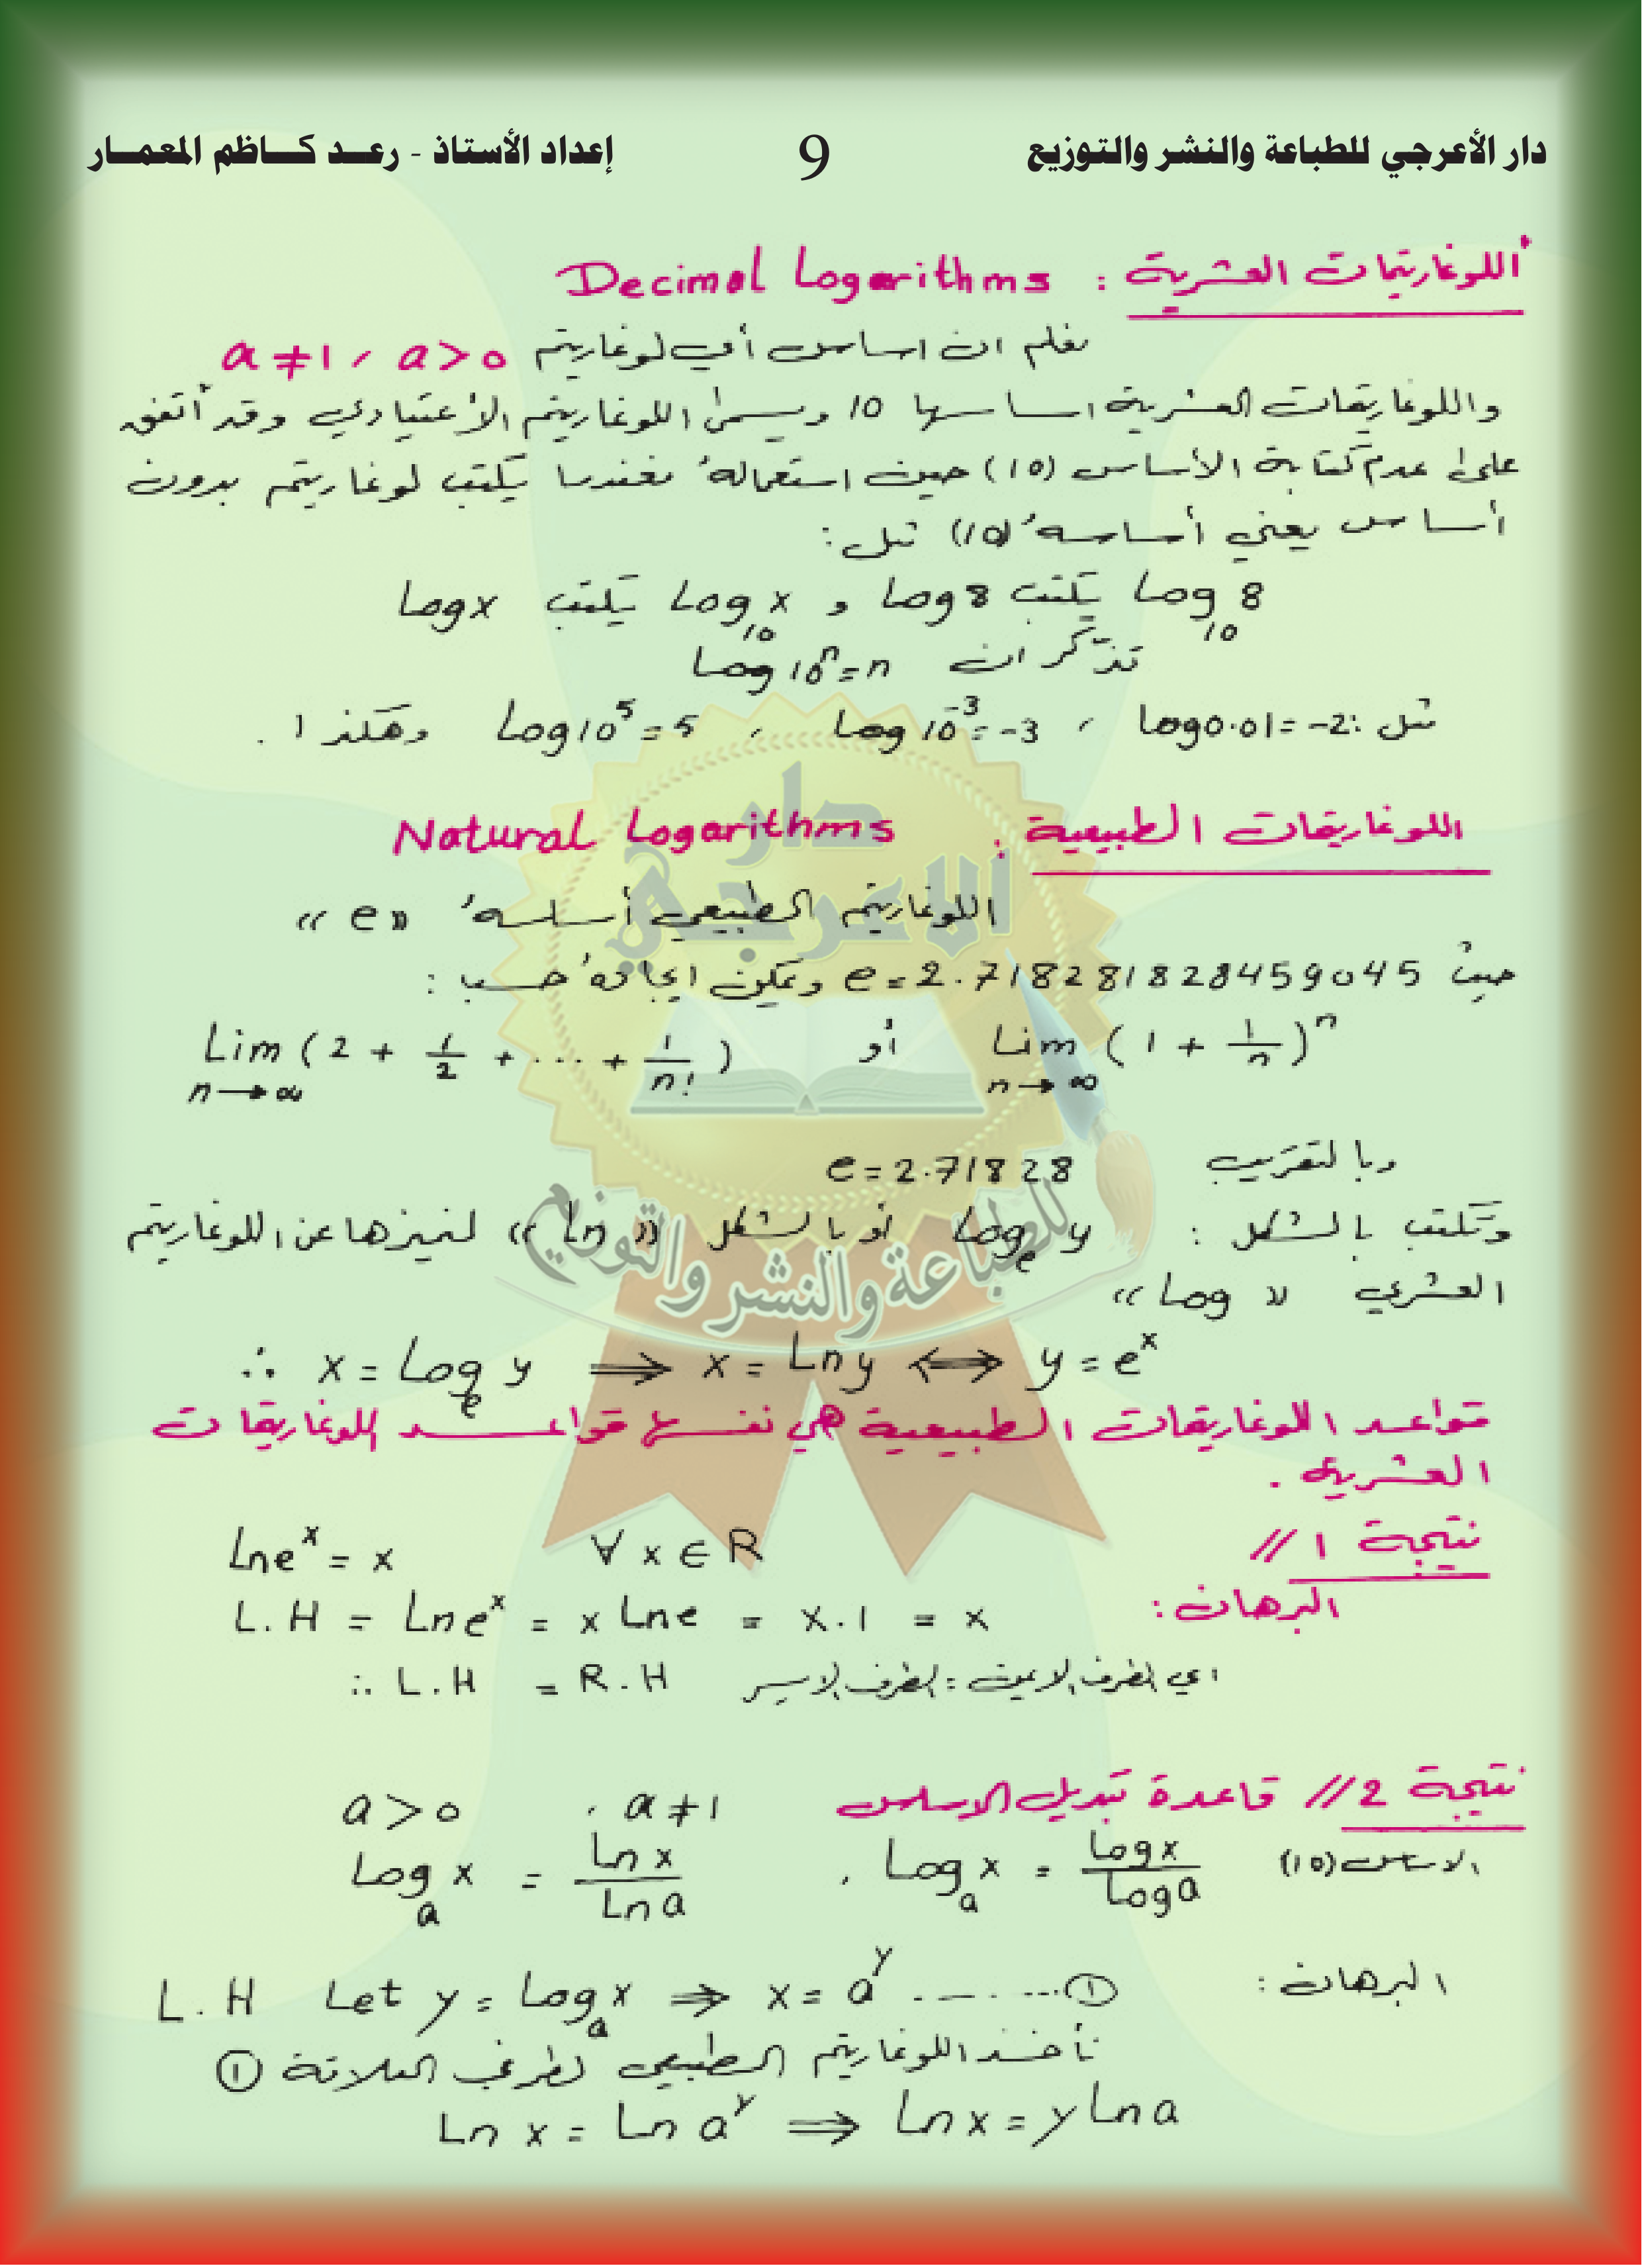 دار الأعرجي للطباعة والنشر والتوزيع 9 إعداد الأستاذ - رعد كاظم المعمار
اللوغاريتمات العشرية : Decimal Logarithms
نعلم ان اساس أي لوغاريتم a > 0 ، a ≠ 1
واللوغاريتمات العشرية اساسها 10 ويسمى اللوغاريتم الأعتيادي وقد أتفق
على عدم كتابة الأساس (10) حين استعماله فعندما يكتب لوغاريتم بدون
أساس يعني أساسه (10) مثل :
Log₁₀ 8 يكتب Log 8 و Log₁₀ x يكتب Log x
تذكر ان Log 10ⁿ = n
مثل : log 0.01 = -2 ، Log 10⁻³ = -3 ، Log 10⁵ = 5 وهكذا .
اللوغاريتمات الطبيعية : Natural Logarithms
اللوغاريتم الطبيعي أساسه « e »
حيث e = 2.718281828459045 ويمكن ايجاده حسب :
Lim n→∞ (1 + 1/n)ⁿ أو Lim n→∞ (2 + 1/2 + ... + 1/n!)
وبالتقريب e = 2.71828
وتكتب بالشكل : Logₑ y أو بالشكل « Ln » لنميزها عن اللوغاريتم
العشري « Log »
∴ x = Logₑ y ⟹ x = Ln y ⟺ y = eˣ
قواعد اللوغاريتمات الطبيعية هي نفسها قواعد اللوغاريتمات
العشرية .
نتيجة 1 // Ln eˣ = x ∀ x ∈ R
البرهان : L.H = Ln eˣ = x Ln e = x.1 = x
اي الطرف الايمن = الطرف الايسر ∴ L.H = R.H
نتيجة 2 // قاعدة تبديل الاساس a ≠ 1 ، a > 0
الاساس (10) Logₐ x = Log x / Log a ، Logₐ x = Ln x / Ln a
البرهان : L.H Let y = Logₐ x ⟹ x = aʸ ........ ①
نأخذ اللوغاريتم الطبيعي لطرفي العلاقة ①
Ln x = Ln aʸ ⟹ Ln x = y Ln a
دار
الاعرجي
للطباعة والنشر والتوزيع